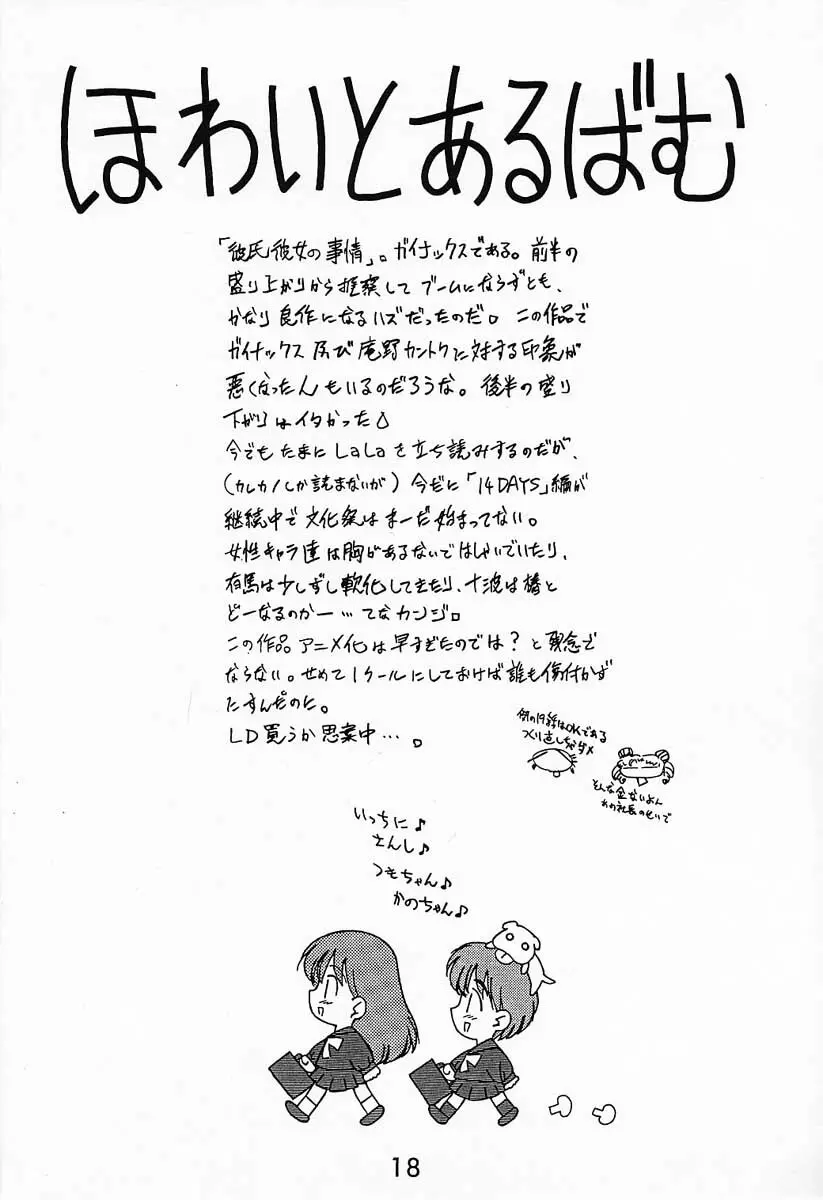 ほわいとあるばむ
「彼氏彼女の事情」。ガイナックスである。前半の
盛り上がりから推察して ブームにならずとも、
かなり良作になるハズだったのだ。この作品で
ガイナックス及び庵野カントクに対する印象が
悪くなったんもいるのだろうな。後半の盛り
下がりはイタかった
今でもたまにLaLaを立ち読みするのだが、
(カレカノしか読まないが) 今だに「14DAYS」編が
継続中で文化祭はまーだ始まってない。
女性キャラ達は胸があるないではしゃいでいたり、
有馬は少しずし軟化してきたり、十波は椿と
どーなるのかー…てなカンジ。
この作品アニメ化は早すぎたのでは?と残念で
ならない。せめて1クールにしておけば誰も傷付かず
たすんだのに。
LD買うか思案中…。
例の19話はOKである
つくり直しちゃダメ
そんな金ないよん
あの社長のせいで
いっちに♪
さんし♪
つもちゃん♪
かのちゃん♪
18